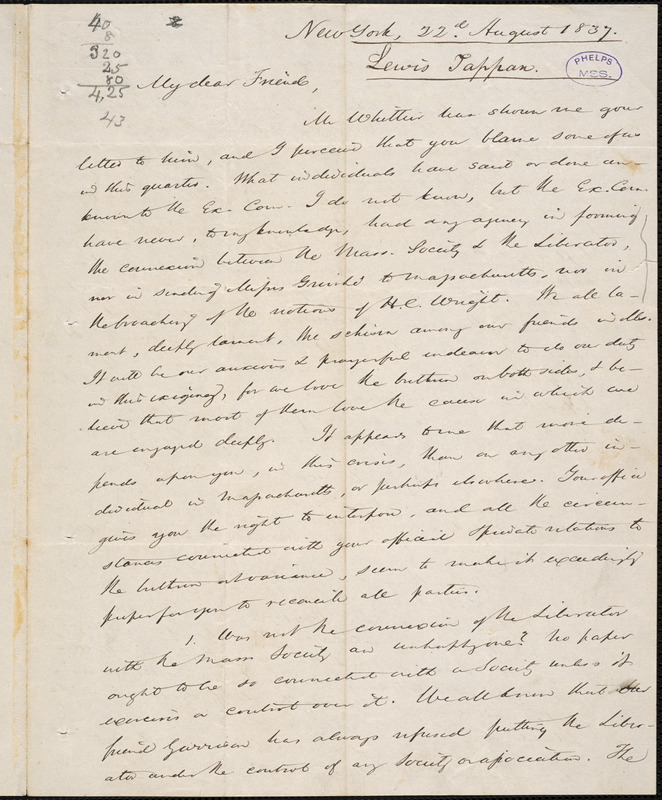 40
8
320
25
80
4,25
43
New York, 22d August 1837.
Lewis Tappan.
PHELPS
MSS.
My dear Friend,
Mr Whittier has shown me your
letter to him, and I perceive that you blame some of us
in this quarter. What individuals have said or done un-
known to the Ex. Com. I do not know, but the Ex. Com.
have never, to my knowledge, had any agency in forming
the connexion between the Mass. Society & the Liberator,
nor in sending Misses Grimké to Massachusetts, nor in
the broaching of the notions of H. C. Wright. We all la-
ment, deeply lament, the schism among our friends in Mss.
It will be our anxious & prayerful endeavor to do our duty
in this exigency, for we love the brethren on both sides, & be-
lieve that most of them love the cause in which we
are engaged deeply. It appears to me that more de-
pends upon you, in this crisis, than on any other in-
dividual in Massachusetts, or perhaps elsewhere. Your office
gives you the right to interpose, and all the circum-
stances connected with your official & private relations to
the brethren at variance, seem to make it exceedingly
proper for you to reconcile all parties.
1. Was not the connexion of the Liberator
with the Mass Society an unhappy one? No paper
ought to be so connected with a Society unless it
exercises a control over it. We all know that our
friend Garrison has always refused putting the Libe-
rator under the control of any Society or association. The